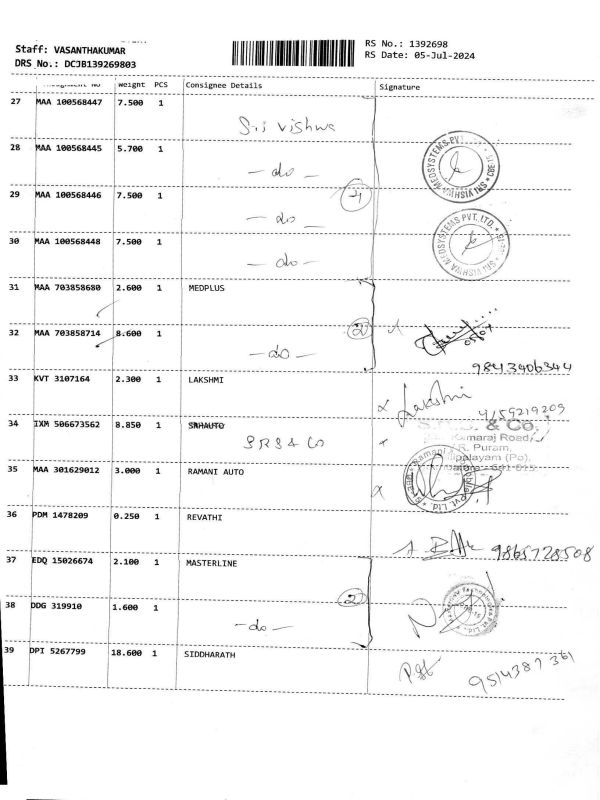 Staff: VASANTHAKUMAR
DRS No.: DCJB139269803
RS No.: 1392698
RS Date: 05-Jul-2024
Weight PCS Consignee Details Signature
27 MAA 100568447 7.500 1 Sri Vishwa
28 MAA 100568445 5.700 1 -do-
29 MAA 100568446 7.500 1 -do-
4
30 MAA 100568448 7.500 1 -do-
SRI VISHWA MEDSYSTEMS PVT. LTD.
SRI VISHWA MEDSYSTEMS PVT. LTD.
31 MAA 703858680 2.600 1 MEDPLUS
32 MAA 703858714 8.600 1 -do-
2
9843406344
33 KVT 3107164 2.300 1 LAKSHMI Lakshmi
34 IXM 506673562 8.850 1 SNHAUTO SRS & Co
& Co.
Kamaraj Road,
R. Puram,
35 MAA 301629012 3.000 1 RAMANI AUTO
36 PDM 1478209 0.250 1 REVATHI
9865728508
37 EDQ 15026674 2.100 1 MASTERLINE
2
38 DDG 319910 1.600 1 -do-
39 DPI 5267799 18.600 1 SIDDHARATH
9514387361